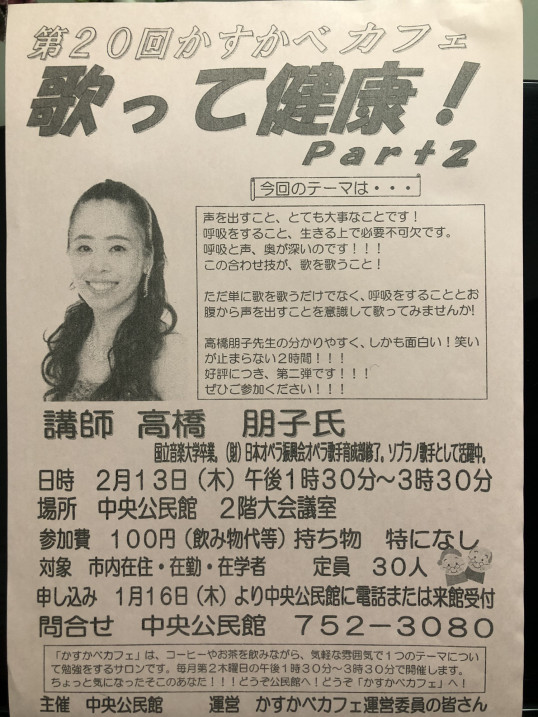 第20回かすかべカフェ
歌って健康！
Part2
今回のテーマは・・・
声を出すこと、とても大事なことです！
呼吸をすること、生きる上で必要不可欠です。
呼吸と声、奥が深いのです！！！
この合わせ技が、歌を歌うこと！
ただ単に歌を歌うだけでなく、呼吸をすることとお
腹から声を出すことを意識して歌ってみませんか!
高橋朋子先生の分かりやすく、しかも面白い！笑い
が止まらない２時間！！！
好評につき、第二弾です！！！
ぜひご参加ください！！！
講師 高橋 朋子氏
国立音楽大学卒業。（財）日本オペラ振興会オペラ歌手育成部修了。ソプラノ歌手として活躍中。
日時 ２月１３日（木）午後１時３０分～３時３０分
場所 中央公民館 ２階大会議室
参加費 １００円（飲み物代等）持ち物 特になし
対象 市内在住・在勤・在学者 定員 ３０人
申し込み １月１６日（木）より中央公民館に電話または来館受付
問合せ 中央公民館 ７５２－３０８０
「かすかべカフェ」は、コーヒーやお茶を飲みながら、気軽な雰囲気で１つのテーマについ
て勉強をするサロンです。毎月第２木曜日の午後１時３０分～３時３０分で開催します。
ちょっと気になったそこのあなた！！！どうぞ公民館へ！どうぞ「かすかべカフェ」へ！
主催 中央公民館 運営 かすかべカフェ運営委員の皆さん